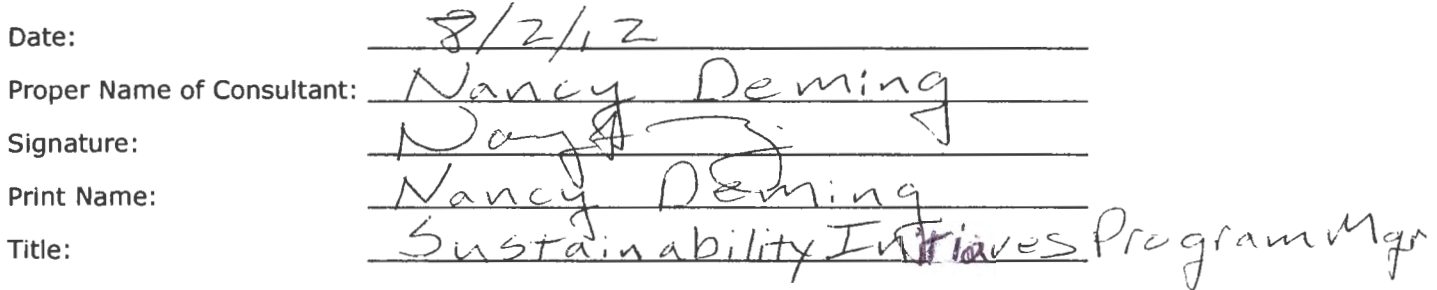 Date: 8/2/12
Proper Name of Consultant: Nancy Deming
Signature:
Print Name: Nancy Deming
Title: Sustainability Initiatives Program Mgr